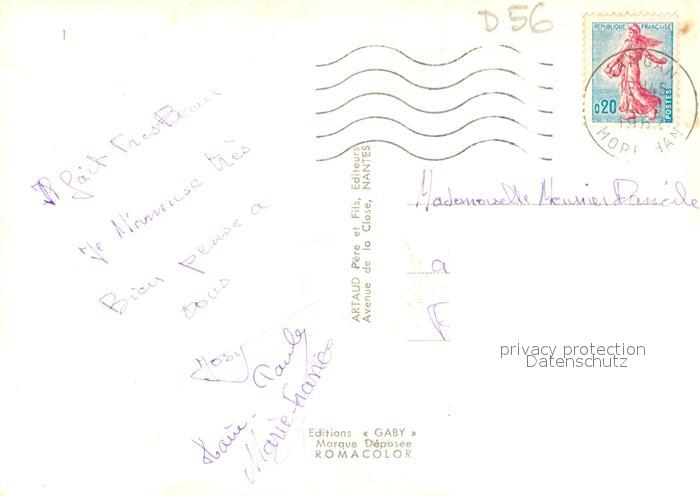 1
D 56
REPUBLIQUE FRANÇAISE
0,20
POSTES
MORBIHAN
Il fait Tres Beau
Je M'amuse très
Bien pense a
vous
Josy
Marie-Paule
Marie-France
ARTAUD Père et Fils, Editeurs
Avenue de la Close, NANTES
Mademoiselle Meunier
a
privacy protection
Datenschutz
Editions « GABY »
Marque Déposée
ROMACOLOR